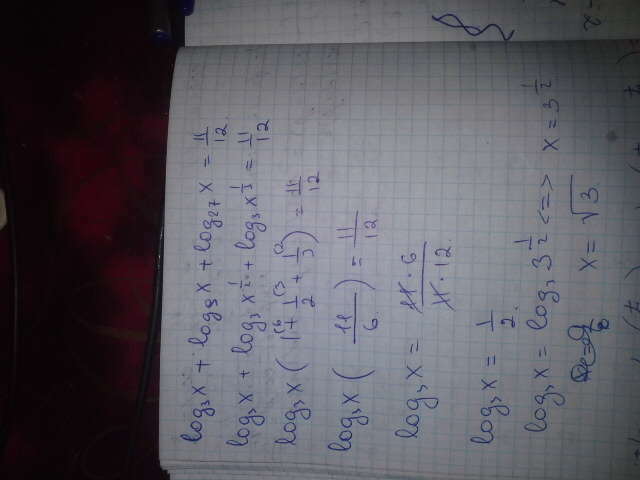 log₃x + log₉x + log₂₇x = 11/12
log₃x + log₃x^(1/2) + log₃x^(1/3) = 11/12
log₃x (1⁽⁶ + 1⁽³/2 + 1⁽²/3) = 11/12
log₃x (11/6) = 11/12
log₃x = 11·6/11·12
log₃x = 1/2.
log₃x = log₃3^(1/2) <=> x = 3^(1/2)
x = √3